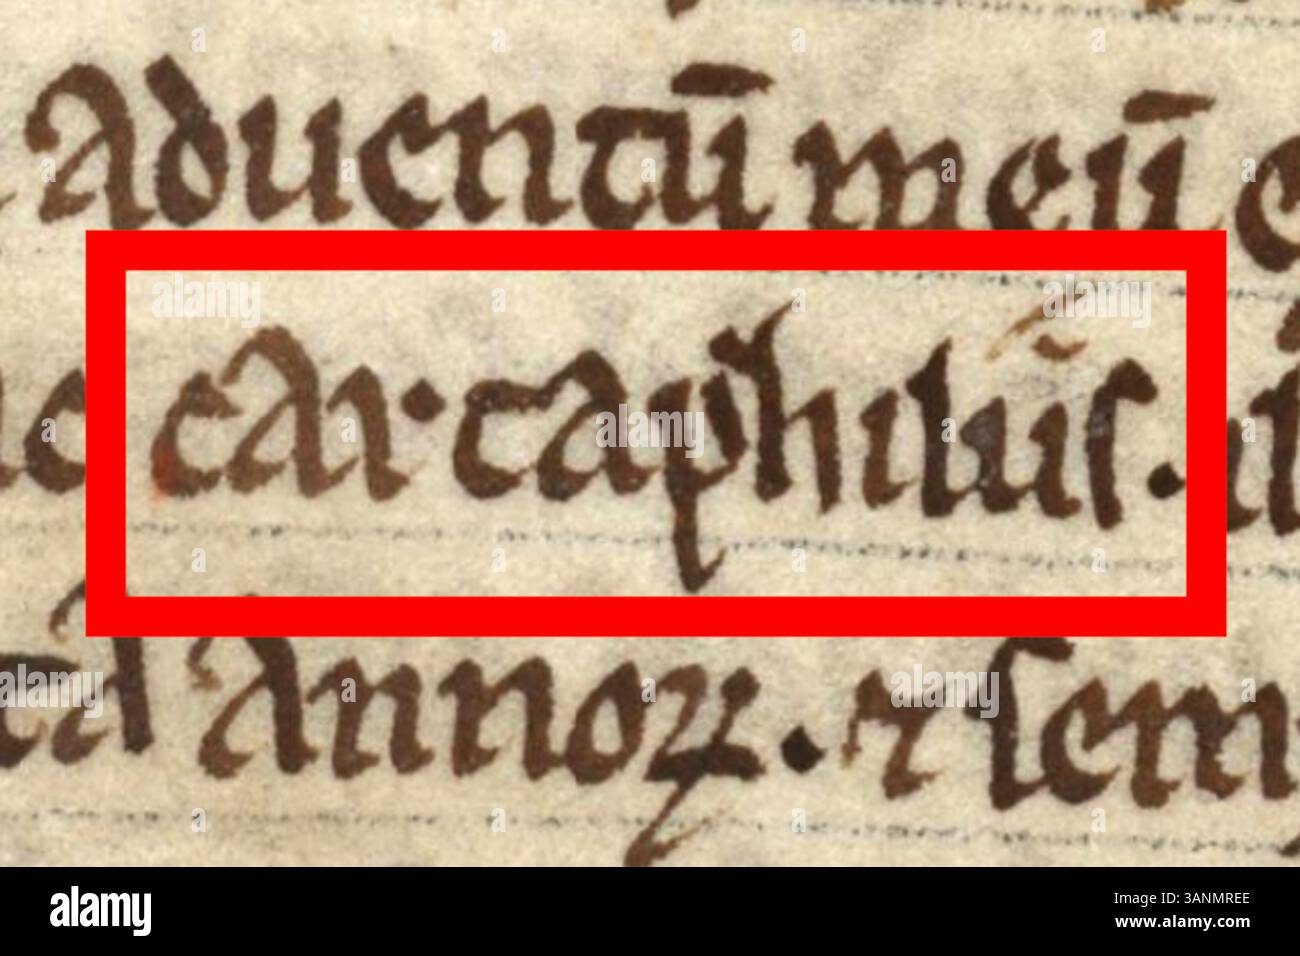 aduentū meū
cartaphilus.
annoꝝ. ⁊ sem
alamy
Image ID: 3ANMREE
www.alamy.com